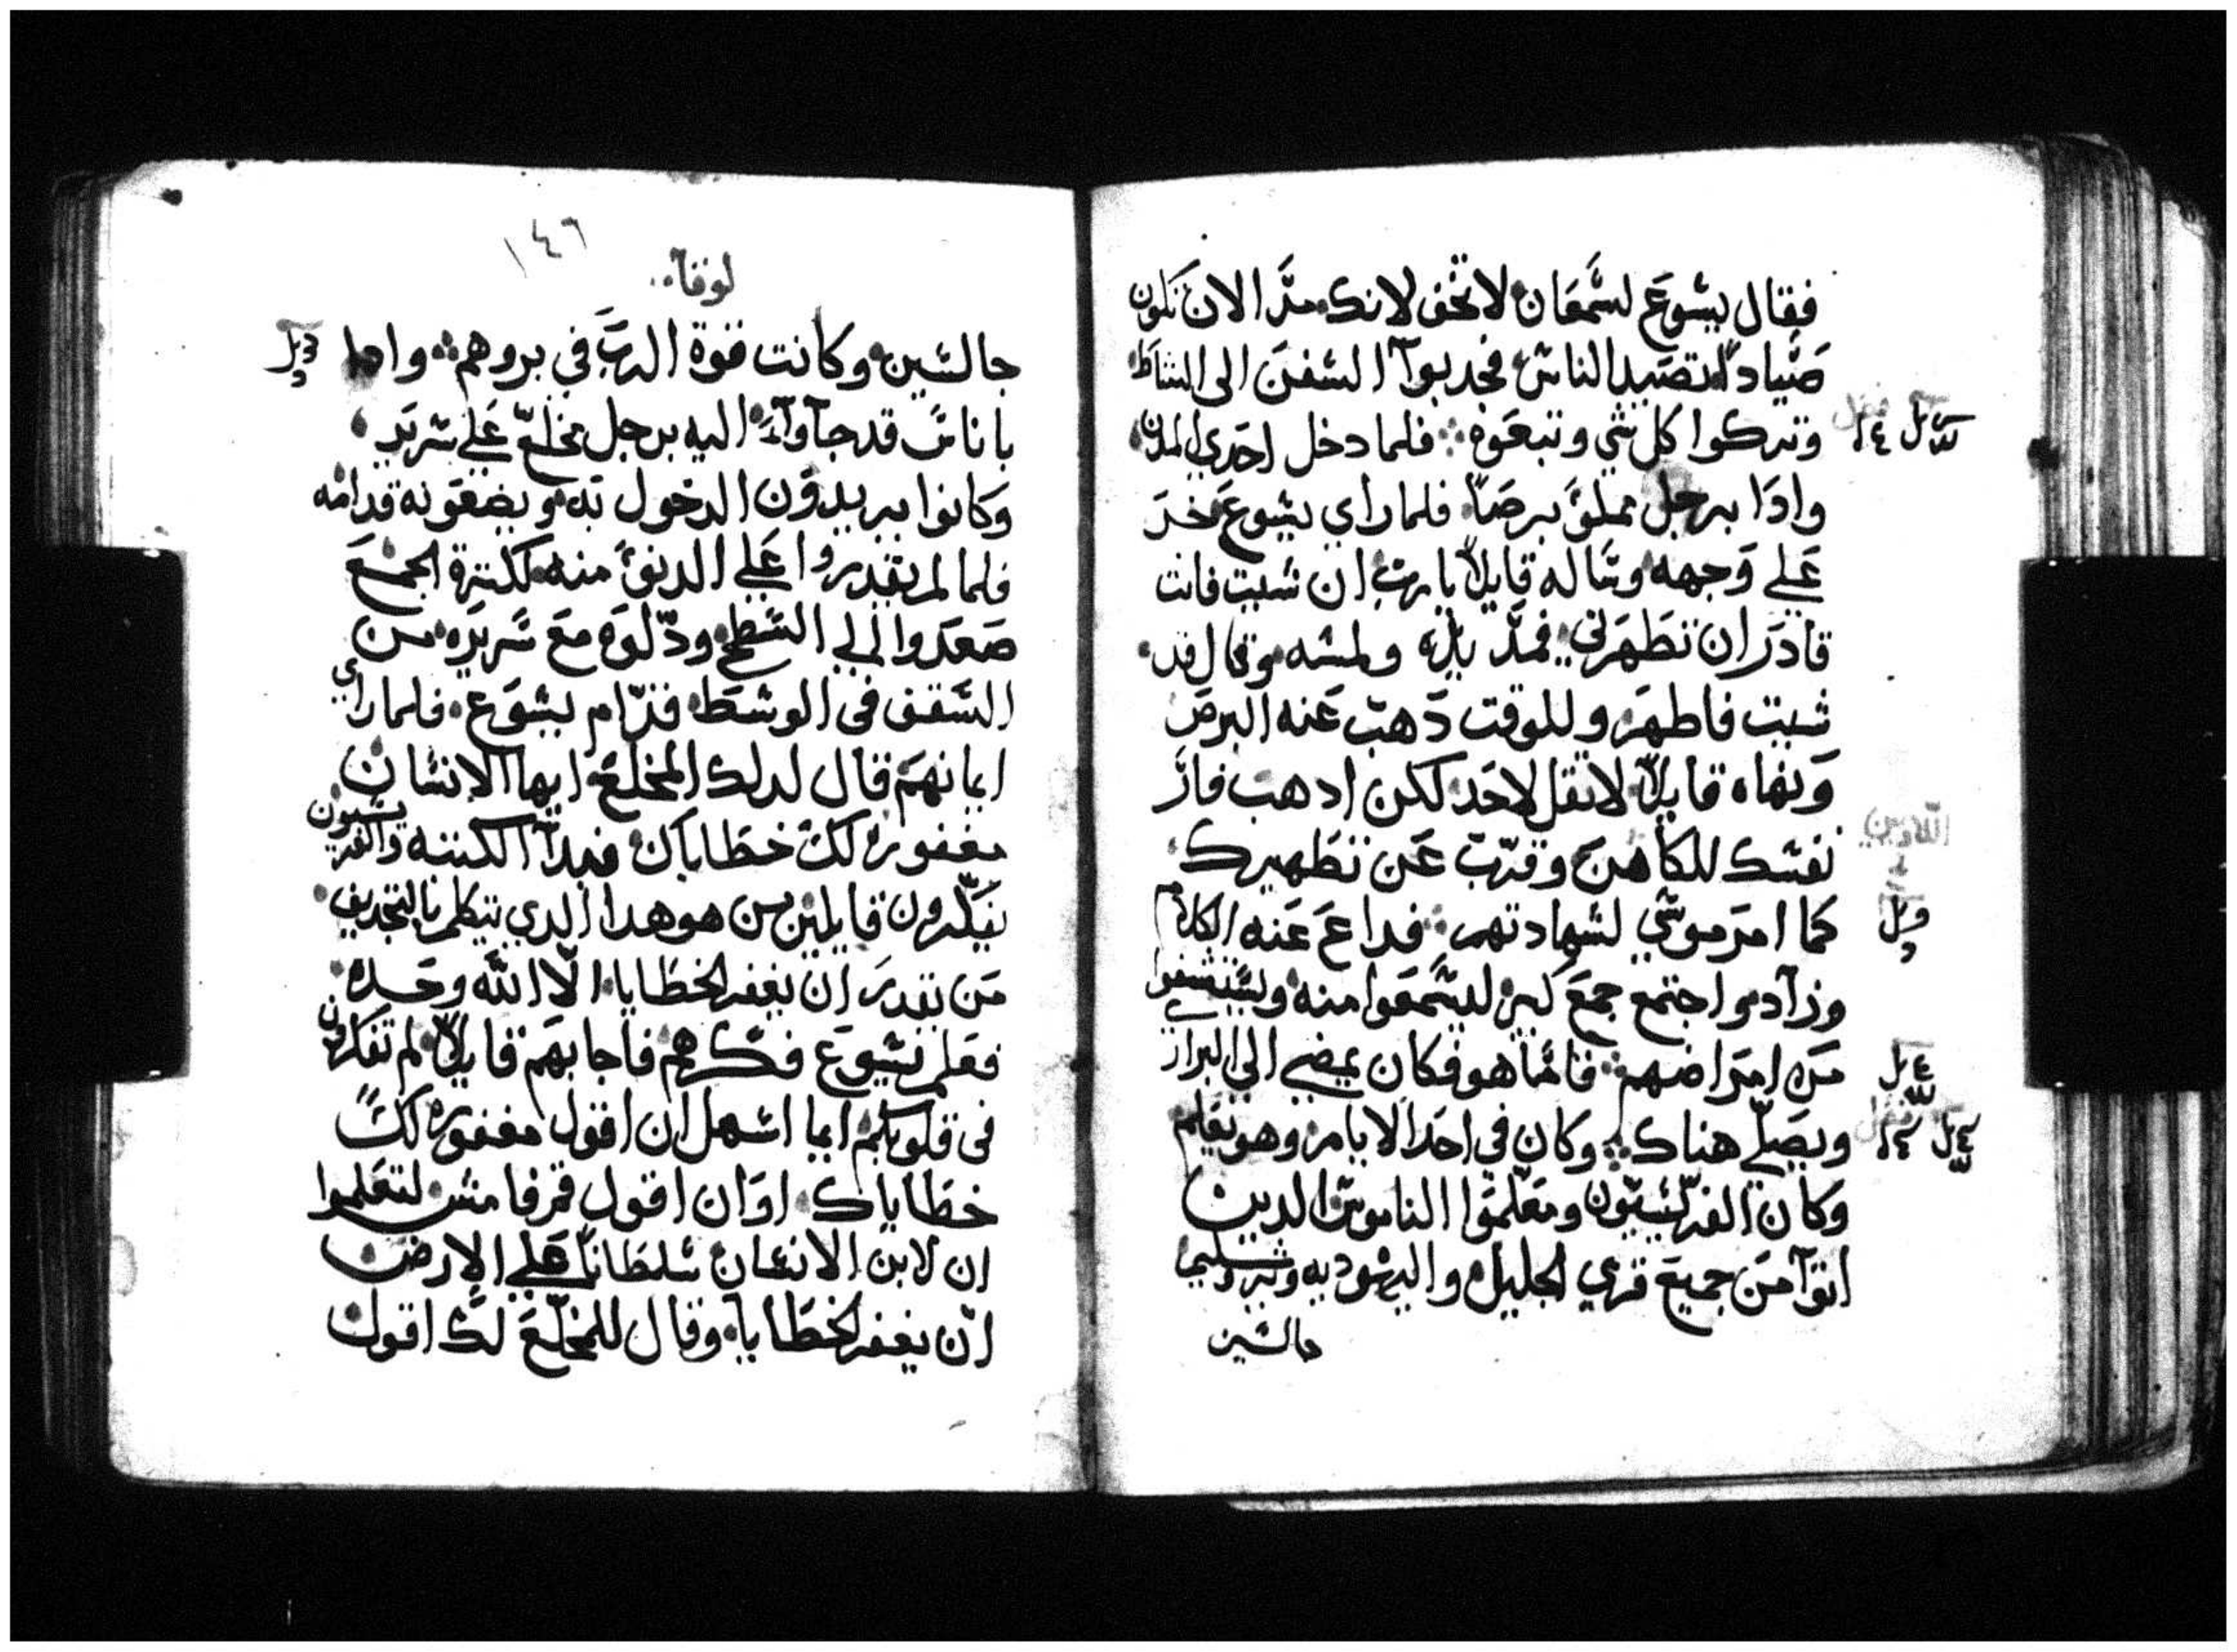 فقال يشوع لشمعان لا تخف لانك مند الان تكون
صيادا تصيد الناس فجدبوا السفن الى الشاط
وتركوا كل شي وتبعوه فلما دخل احدي المدن
وادا برجل مملو برصا فلما راي يشوع خر
علي وجهه وساله قايلا يا رب ان شيت فانت
قادر ان تطهرني فمد يده ولمسه وقال قد
شيت فاطهر وللوقت دهب عنه البرص
ونهاه قايلا لا تقل لاحد لكن ادهب فار
نفسك للكاهن وقرب عن تطهيرك
كما امر موسي لشهادتهم فداع عنه الكلام
وزادوا جتمع جمع كبير ليسمعوا منه وليستشفوا
من امراضهم فاما هو فكان يمضي الي البراز
ويصلي هناك وكان في احد الايام وهو يعلم
وكان الفريسيون ومعلموا الناموس الدين
اتوا من جميع قري الجليل واليهوديه ويروشليم
جالسين
١٤٦
لوقا
جالسين وكانت قوة الرب في بروهم وادا
باناس قد جاوا اليه برجل مخلع علي سرير
وكانوا يريدون الدخول به ويضعونه قدامه
فلما لم يقدروا علي الدنو منه لكترة الجمع
صعدوا الي السطح ودلوه مع سريره من
السقف في الوسط قدام يشوع فلما راي
ايمانهم قال لدلك المخلع ايها الانسان
مغفوره لك خطاياك فبدا الكتبه والفريسيون
يفكرون قايلين من هو هدا الدي يتكلم بالتجديف
من يقدر ان يغفر الخطايا الا الله وحده
فعلم يشوع فكرهم فاجابهم قايلا لم تفكرون
في قلوبكم ايما اسهل ان اقول مغفوره لك
خطاياك او ان اقول قم فامش لتعلموا
ان لابن الانسان سلطانا علي الارض
ان يغفر الخطايا وقال للمخلع لك اقول